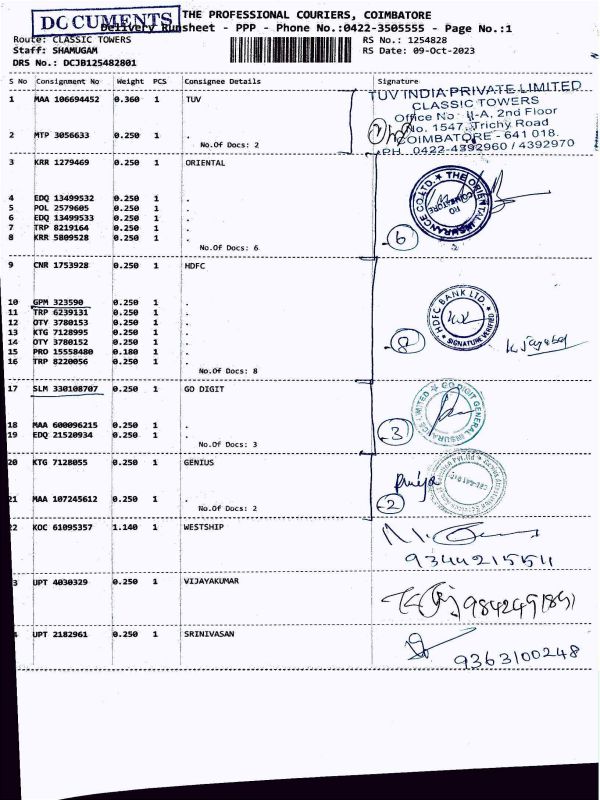 DOCUMENTS
THE PROFESSIONAL COURIERS, COIMBATORE
Delivery Runsheet - PPP - Phone No.:0422-3505555 - Page No.:1
Route: CLASSIC TOWERS
RS No.: 1254828
Staff: SHAMUGAM
RS Date: 09-Oct-2023
DRS No.: DCJB125482801
S No Consignment No Weight PCS Consignee Details Signature
1 MAA 106694452 0.360 1 TUV
TUV INDIA PRIVATE LIMITED
CLASSIC TOWERS
Office No : II-A, 2nd Floor
No. 1547, Trichy Road
COIMBATORE - 641 018.
PH. 0422-4392960 / 4392970
2 MTP 3056633 0.250 1 .
No.Of Docs: 2
3 KRR 1279469 0.250 1 ORIENTAL
4 EDQ 13499532 0.250 1 .
5 POL 2579605 0.250 1 .
6 EDQ 13499533 0.250 1 .
7 TRP 8219164 0.250 1 .
8 KRR 5809528 0.250 1 .
No.Of Docs: 6
THE ORIENTAL INSURANCE CO.LTD.
RO
COIMBATORE
6
9 CNR 1753928 0.250 1 HDFC
10 GPM 323590 0.250 1 .
11 TRP 6239131 0.250 1 .
12 OTY 3780153 0.250 1 .
13 KTG 7128995 0.250 1 .
14 OTY 3780152 0.250 1 .
15 PRO 15558480 0.180 1 .
16 TRP 8220056 0.250 1 .
No.Of Docs: 8
HDFC BANK LTD.
SIGNATURE VERIFIED
8
17 SLM 330108707 0.250 1 GO DIGIT
18 MAA 600096215 0.250 1 .
19 EDQ 21520934 0.250 1 .
No.Of Docs: 3
GO DIGIT GENERAL INSURANCE LIMITED
3
20 KTG 7128055 0.250 1 GENIUS
21 MAA 107245612 0.250 1 .
No.Of Docs: 2
Priya
2
22 KOC 61095357 1.140 1 WESTSHIP
9344215511
3 UPT 4030329 0.250 1 VIJAYAKUMAR
4 UPT 2182961 0.250 1 SRINIVASAN
9363100248